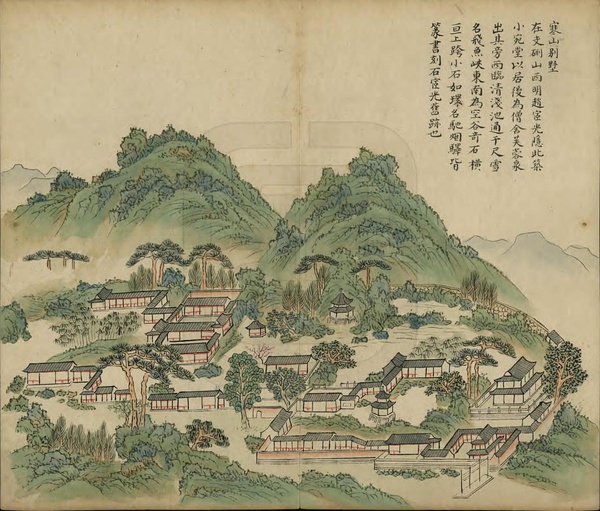 寒山別墅
在支硎山西明趙宧光隱此築
小宛堂以居後為僧舍芙蓉泉
出其旁西臨清淺池通千尺雪
名飛魚峽東南為空谷奇石橫
亘上跨小石如環名馳烟驛皆
篆書刻石宧光舊跡也